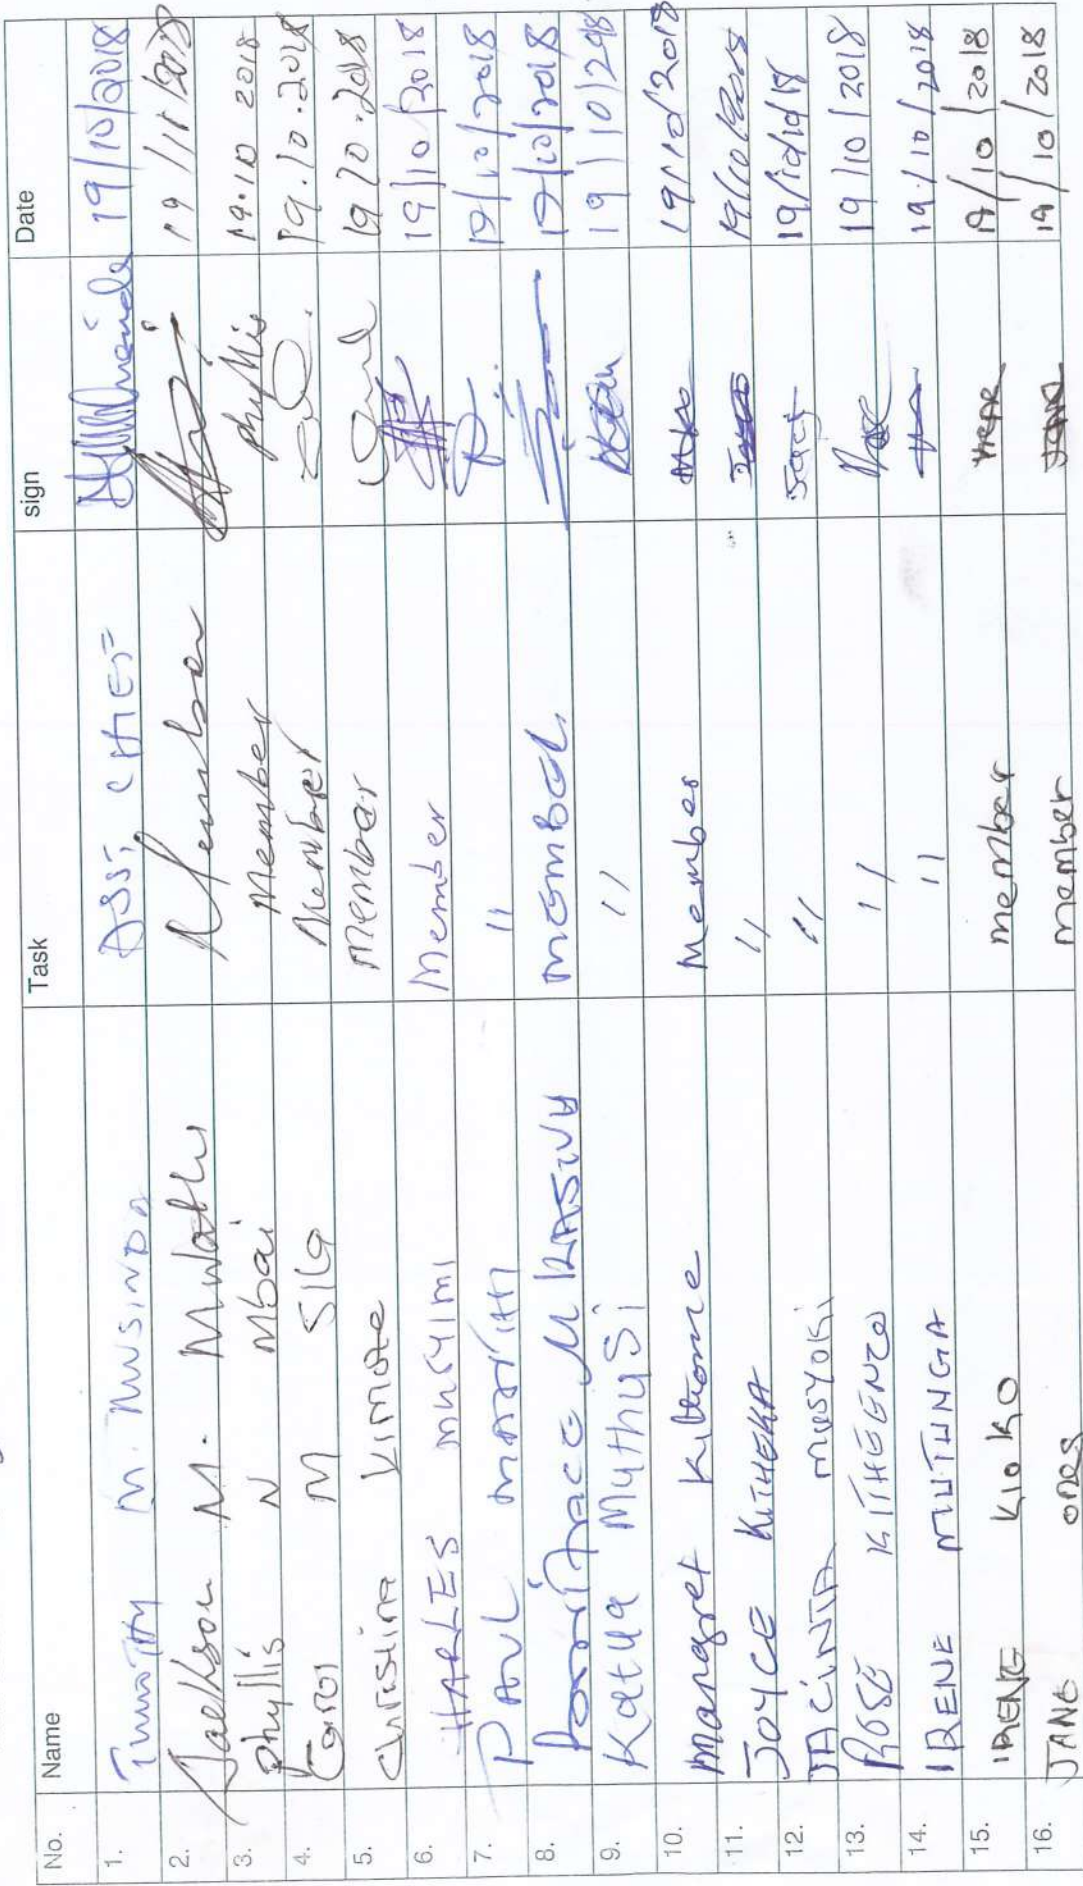 No. Name Task sign Date
1. Timothy M. Musinda Asst, CHIEF 19/10/2018
2. Jackson M. Mwathi Member 19/11/2018
3. Phyllis N Mbai Member Phyllis 19.10 2018
4. Carol M Sila Member 19.10.2018
5. Christina Kimote Member 19 10.2018
6. HARLES MUSYIMI Member 19/10/2018
7. PAUL 11 19/10/2018
8. M KASIVU member 19/10/2018
9. Katua Muthusi 11 19/10/2018
10. Margret Kithome Member 19/10/2018
11. JOYCE KITHEKA 11 19/10/2018
12. JACINTA musyoki 11 19/10/18
13. ROSE KITHEENZO 11 19/10/2018
14. IRENE MUTUNGA 11 19/10/2018
15. IRENE KIOKO member 19/10/2018
16. JANE member 19/10/2018